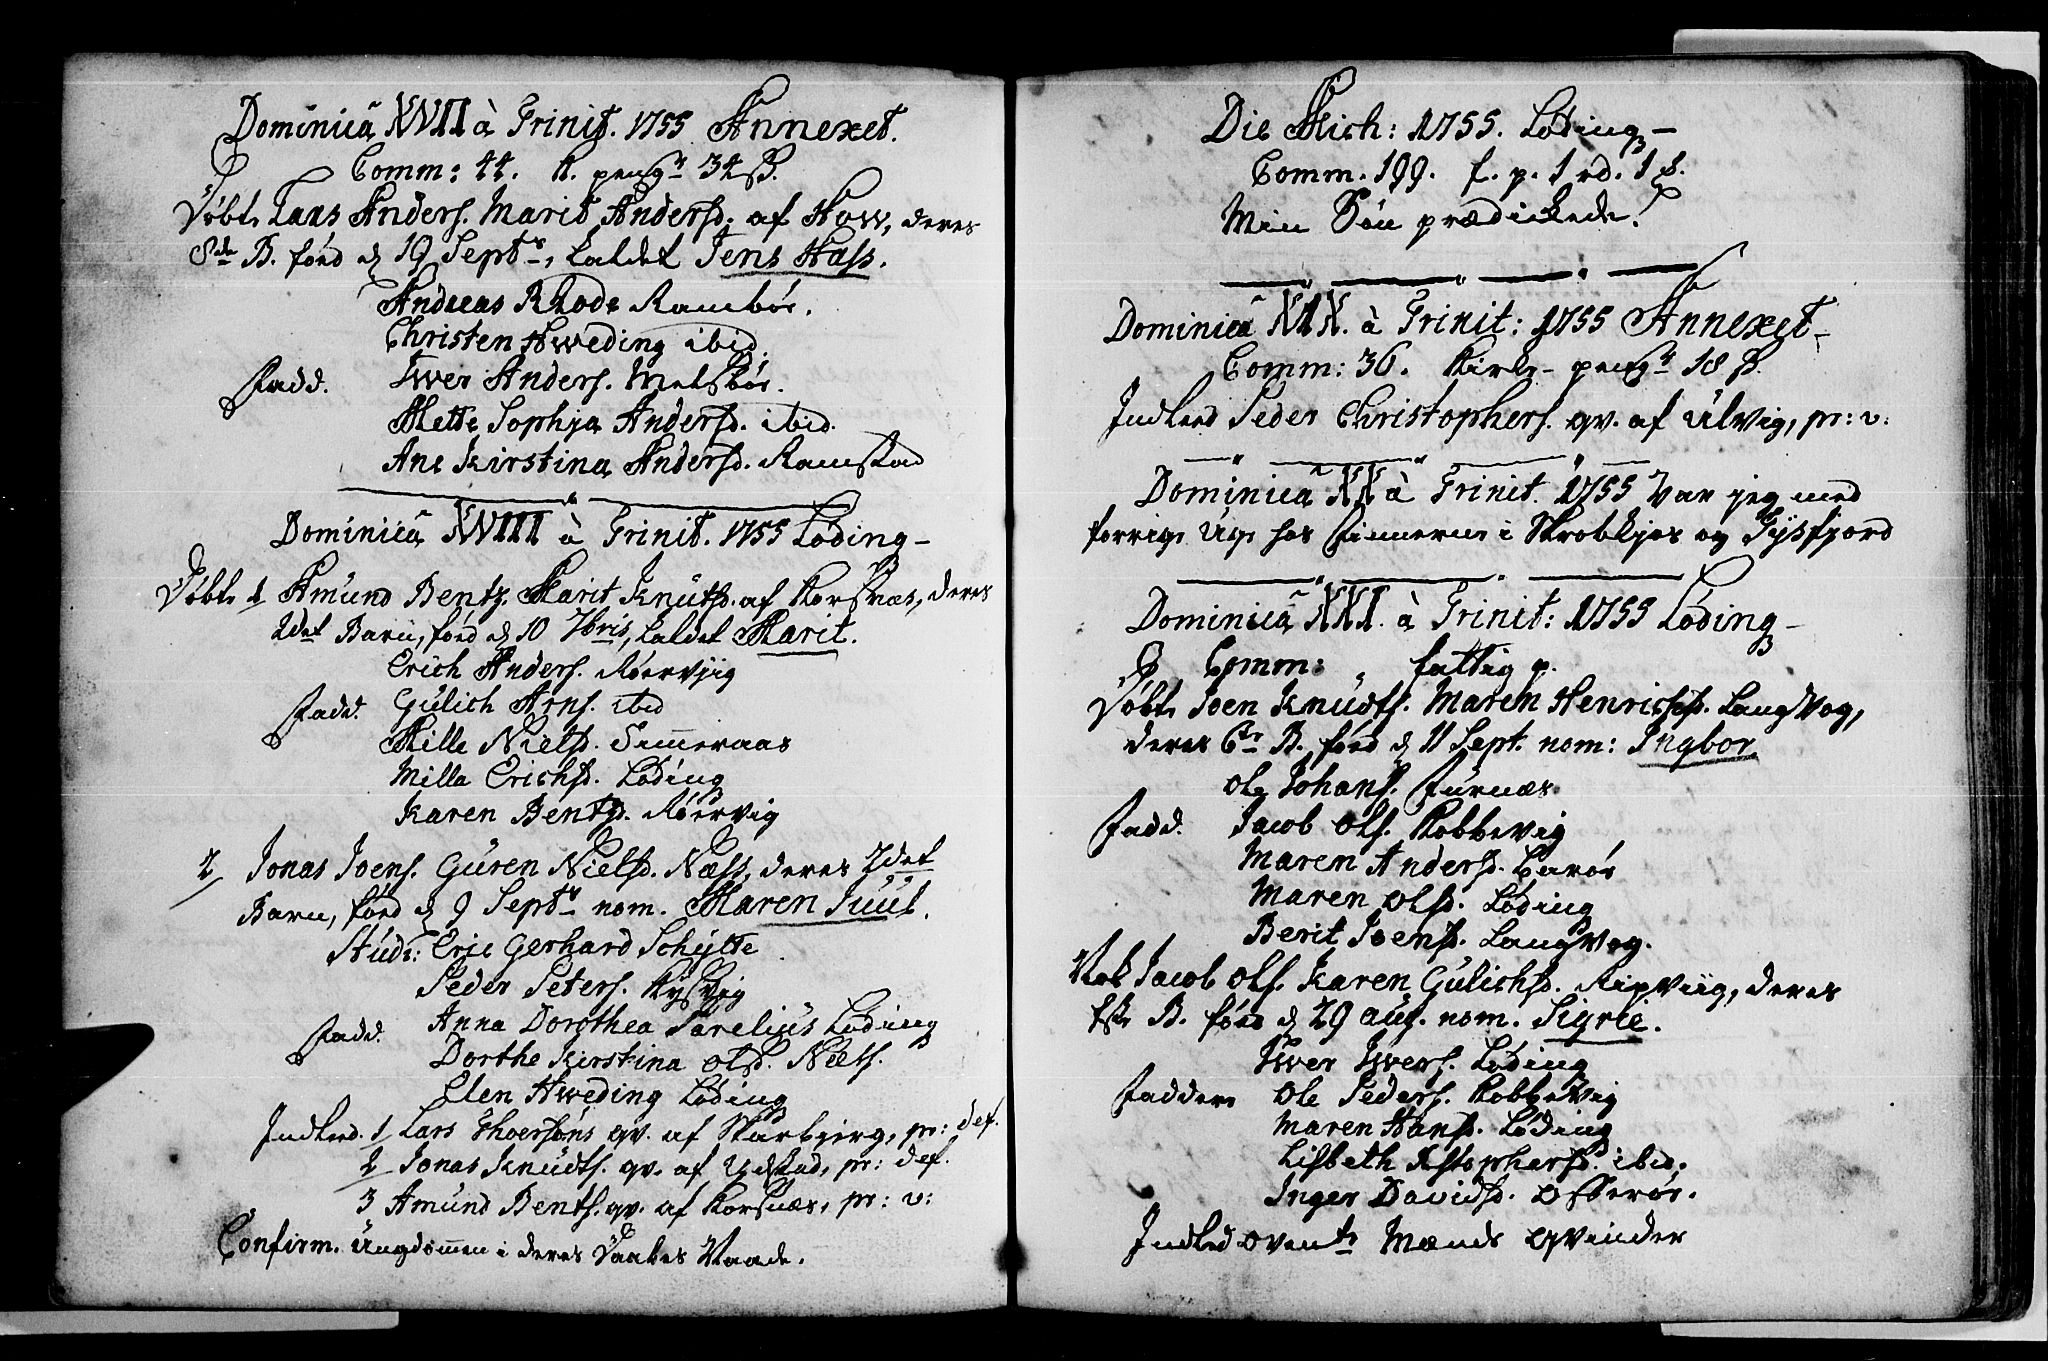 Dominicâ XVII à Trinit. 1755 Annexet.
Comm: 44. K. peng^r 34 ß.
Døbt Lars Anders. Marit Andersd. af Haw, deres
8de B. fød d 19 Sept^r, kaldet Jens Hass.
Andreas Rhode Rambør.
Christen Hweding ibid.
Fadd. Iwer Anders. Melsbør.
Mette Sophja Andersd. ibid.
Ane Kirstina Andersd. Ramstad
Dominicâ XVIII à Trinit. 1755 Løding
Døbt 1 Amund Bentz. Marit Knutsd. af Korsnæs, deres
2det Barn, fød d 10 7bris, kaldet Marit.
Erich Anders. Røervjig
Fadd. Gulich Arns. ibid
Mille Nielsd. Simeraas
Milla Erichsd. Løding
Karen Bentzd. Røervig
2 Jonas Joens. Guren Nielsd. Næss, deres 2det
Barn, fød d 9 Sept^r nom. Maren Juul.
Stud: Eric Gerhard Schytte
Peder Peters. Rysvig
Anna Dorothea Parelius Løding
Fadd. Dorthe Kirstina Olsd. Niels.
Elen Hweding Løding
Indled. 1 Lars Thoersøns qv. af Skarbjerg, pr: def.
2 Jonas Knudts. qv. af Ydstad, pr: def.
3 Amund Bents. qv. af Korsnæs, pr: v:
Confirm. Ungdommen i deres Daabes Naade.
Die Mich: 1755. Løding
Comm. 199. f. p. 1 rd. 1 ß.
Min Søn prædickede.
Dominicâ XIX. à Trinit: 1755 Annexet
Comm: 36. Kirke-peng^r 18 ß.
Indled Peder Christophers. qv. af Ulvig, pr: v:
Dominicâ XX à Trinit. 1755 Var jeg med
forrige Uge hos Finnerne i Skrobkjos og Tysfjord
Dominicâ XXI. à Trinit: 1755 Løding
Comm: „ fattig p.
Døbt Joen Knudts. Maren Henrichsd. Langvog,
deres 6te B. fød d 11 Sept. nom: Ingbor
Ole Johans. Furnæs
Fadd. Jacob Ols. Kobbevig
Maren Andersd. Barør
Maren Olsd. Løding
Berit Joensd. Langvog.
Nok Jacob Ols. Karen Gulichsd. Ripviig, deres
1ste B. fød d 29 Aug. nom. Sigrie.
Iwer Iwers. Løding
Faddere Ole Peders. Kobbevig
Maren Hansd. Løding
Lisbeth Xstophersd. ibid.
Inger Davidsd. Offerør.
Indled ovente Mænds Qvinder